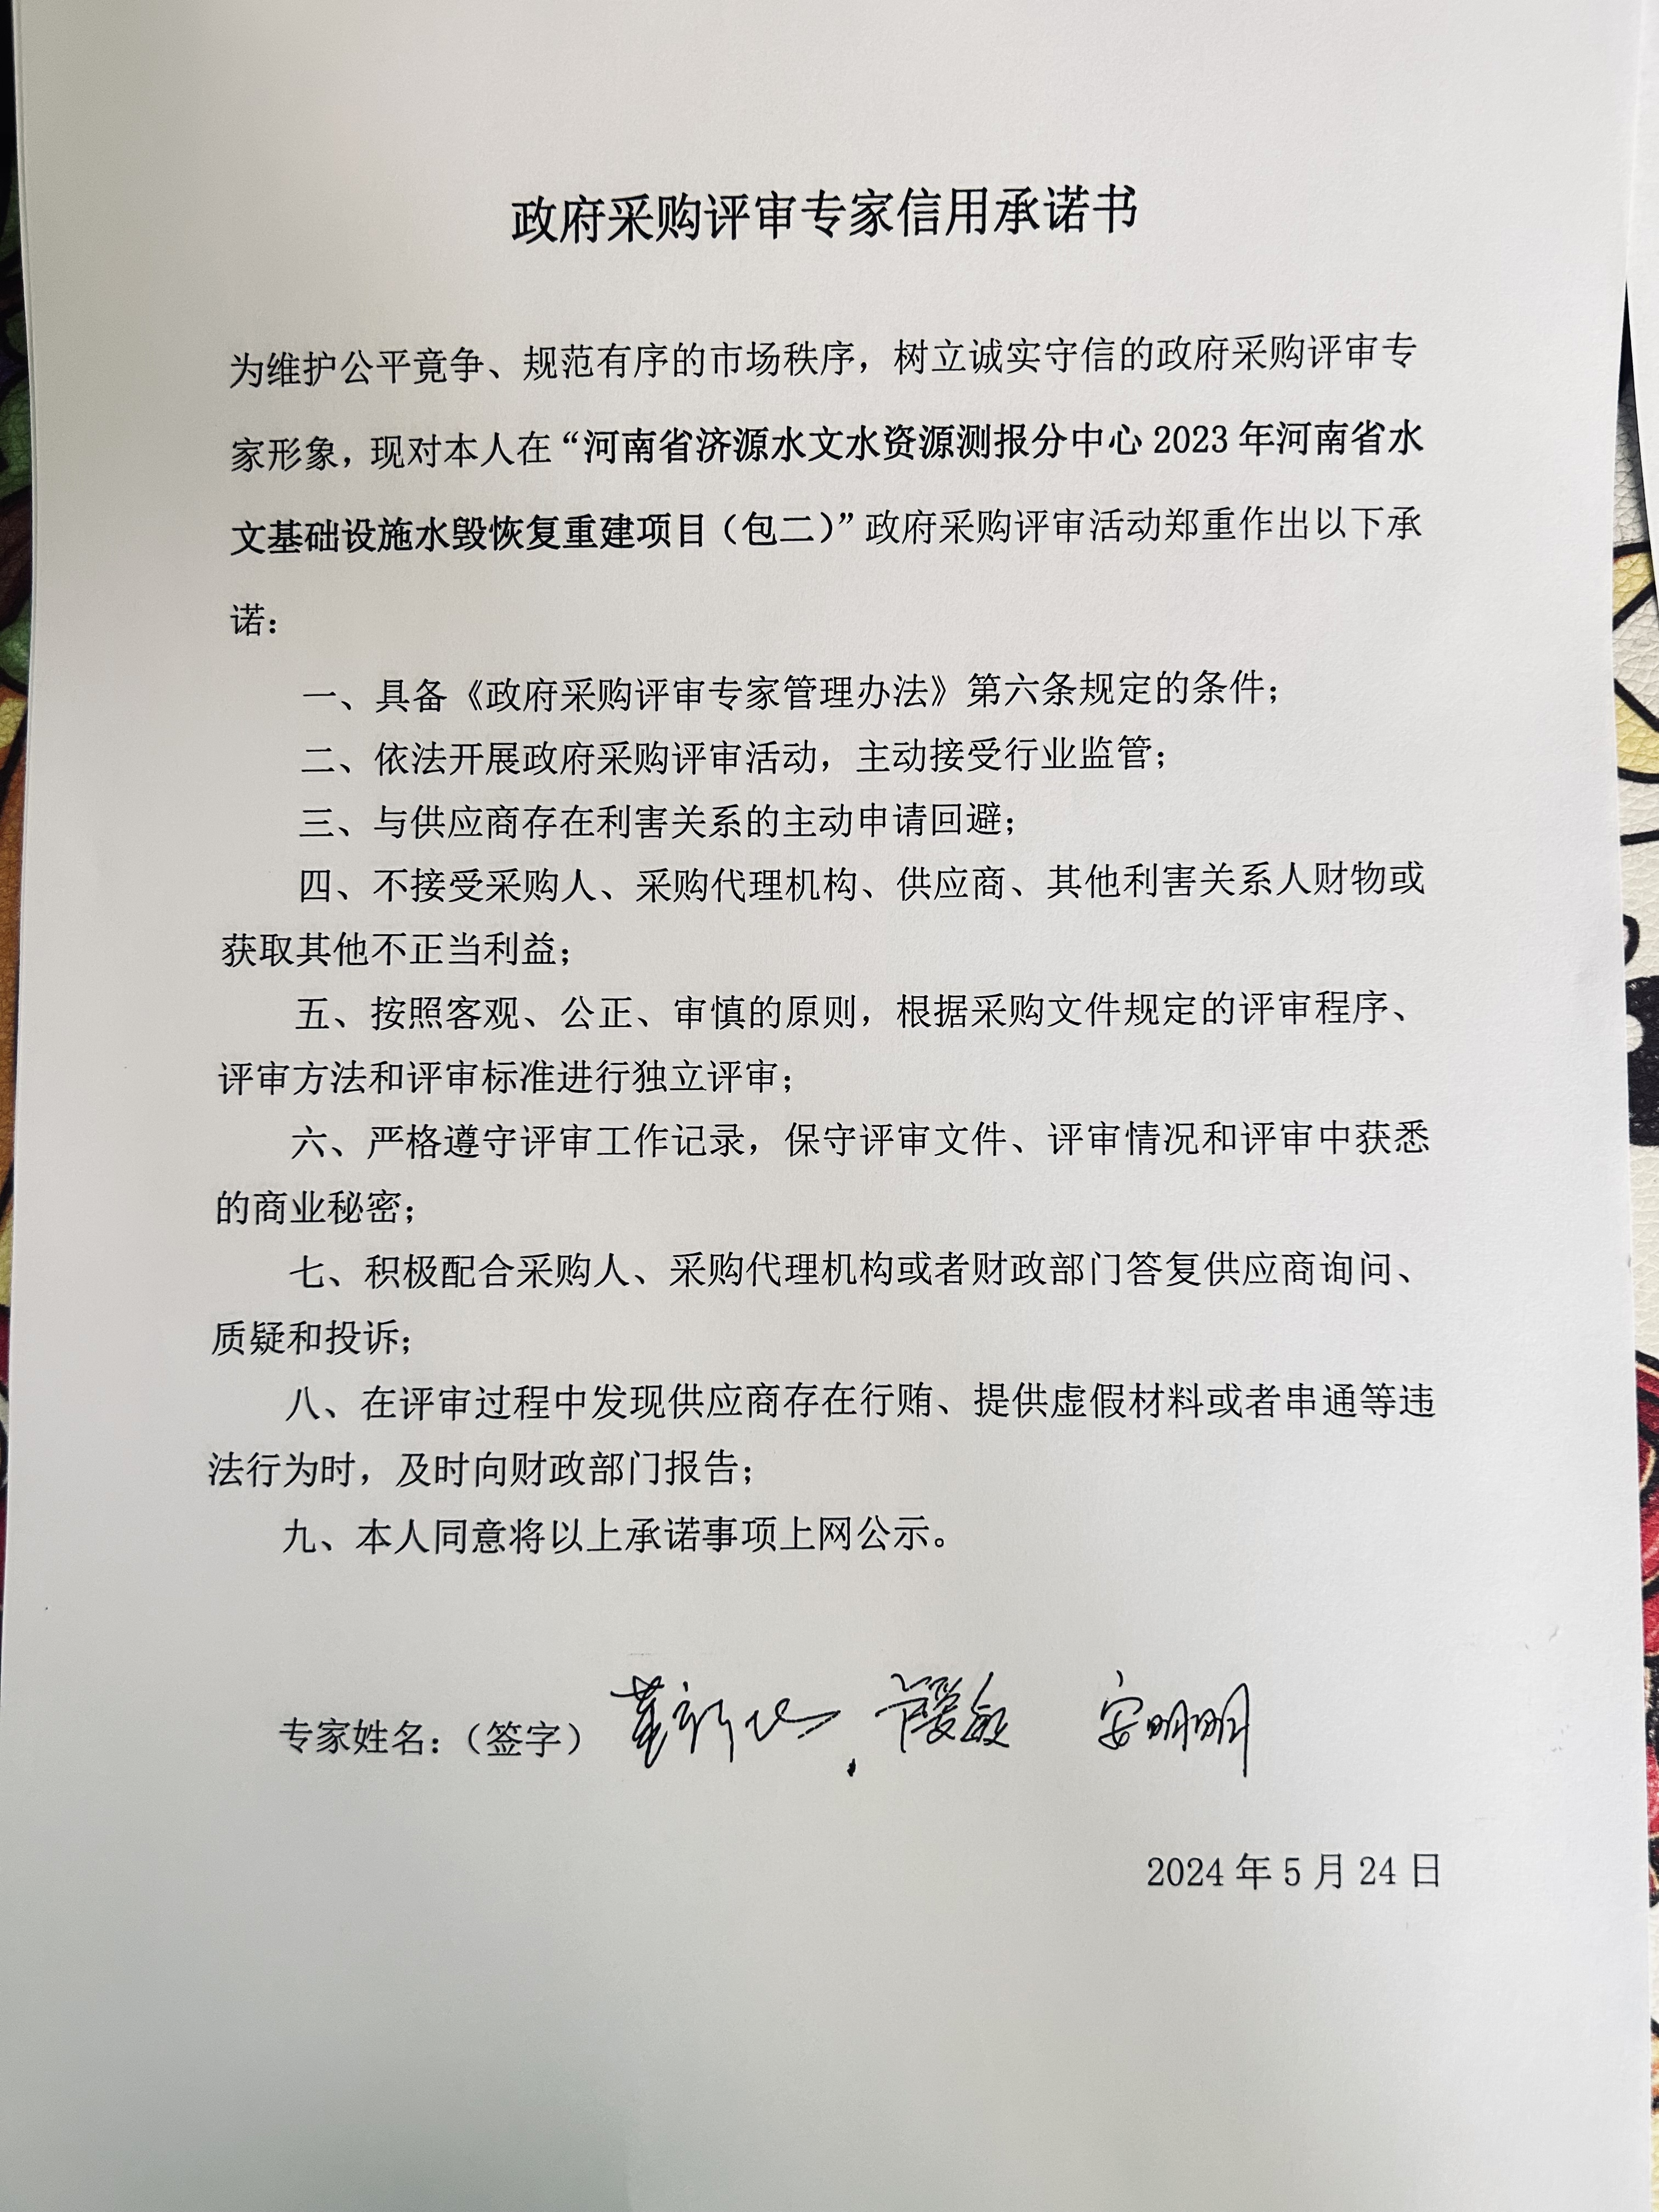 政府采购评审专家信用承诺书
为维护公平竟争、规范有序的市场秩序，树立诚实守信的政府采购评审专
家形象，现对本人在“河南省济源水文水资源测报分中心 2023 年河南省水
文基础设施水毁恢复重建项目（包二）”政府采购评审活动郑重作出以下承
诺：
一、具备《政府采购评审专家管理办法》第六条规定的条件；
二、依法开展政府采购评审活动，主动接受行业监管；
三、与供应商存在利害关系的主动申请回避；
四、不接受采购人、采购代理机构、供应商、其他利害关系人财物或
获取其他不正当利益；
五、按照客观、公正、审慎的原则，根据采购文件规定的评审程序、
评审方法和评审标准进行独立评审；
六、严格遵守评审工作记录，保守评审文件、评审情况和评审中获悉
的商业秘密；
七、积极配合采购人、采购代理机构或者财政部门答复供应商询问、
质疑和投诉；
八、在评审过程中发现供应商存在行贿、提供虚假材料或者串通等违
法行为时，及时向财政部门报告；
九、本人同意将以上承诺事项上网公示。
专家姓名：（签字） 安明明
2024 年 5 月 24 日